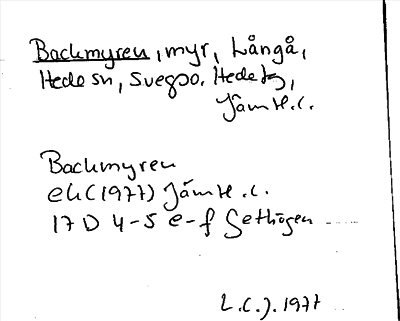 Backmyren, myr, Långå,
Hede sn, Svegs o. Hede tg,
Jämtl.
Backmyren
ek (1977) Jämtl.
17 D 4-5 e-f Sethögen
L.C.J. 1977